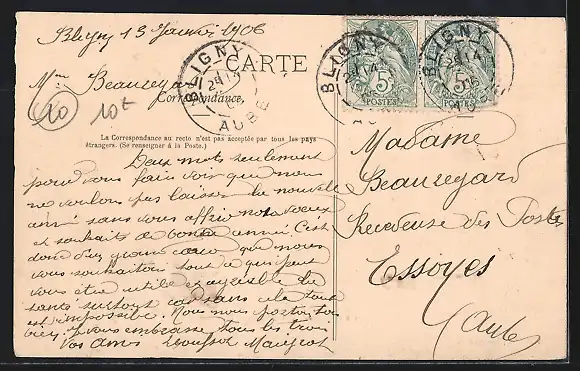 Bligny 13 Janvier 1906
CARTE
Mme Beauregard
Correspondance
10
10t
BLIGNY
AUBE
BLIGNY
AUBE
5c
POSTES
5c
POSTES
La Correspondance au recto n'est pas acceptée par tous les pays
étrangers. (Se renseigner à la Poste.)
Deux mots seulement
pour vous faire voir que nous
ne voulons pas laisser la nouvelle
anné sans vous offrir nos voeux
et souhaits de bonne anné. C'est
donc d'un grand coeur que nous
vous souhaitons tous ce qui peut
vous être utile et agréable la
santé surtout car sans cela tout
est impossible. Nous nous portons tous
bien. vous embrasse tous les trois
vos amis
Madame
Beauregard
Receveuse des Postes
Essoyes
(Aube)